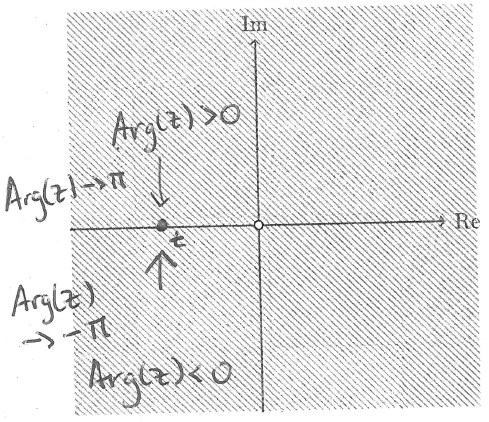 Im
Arg(z)>0
Arg(z)→π
Re
z
Arg(z)
→ -π
Arg(z)<0